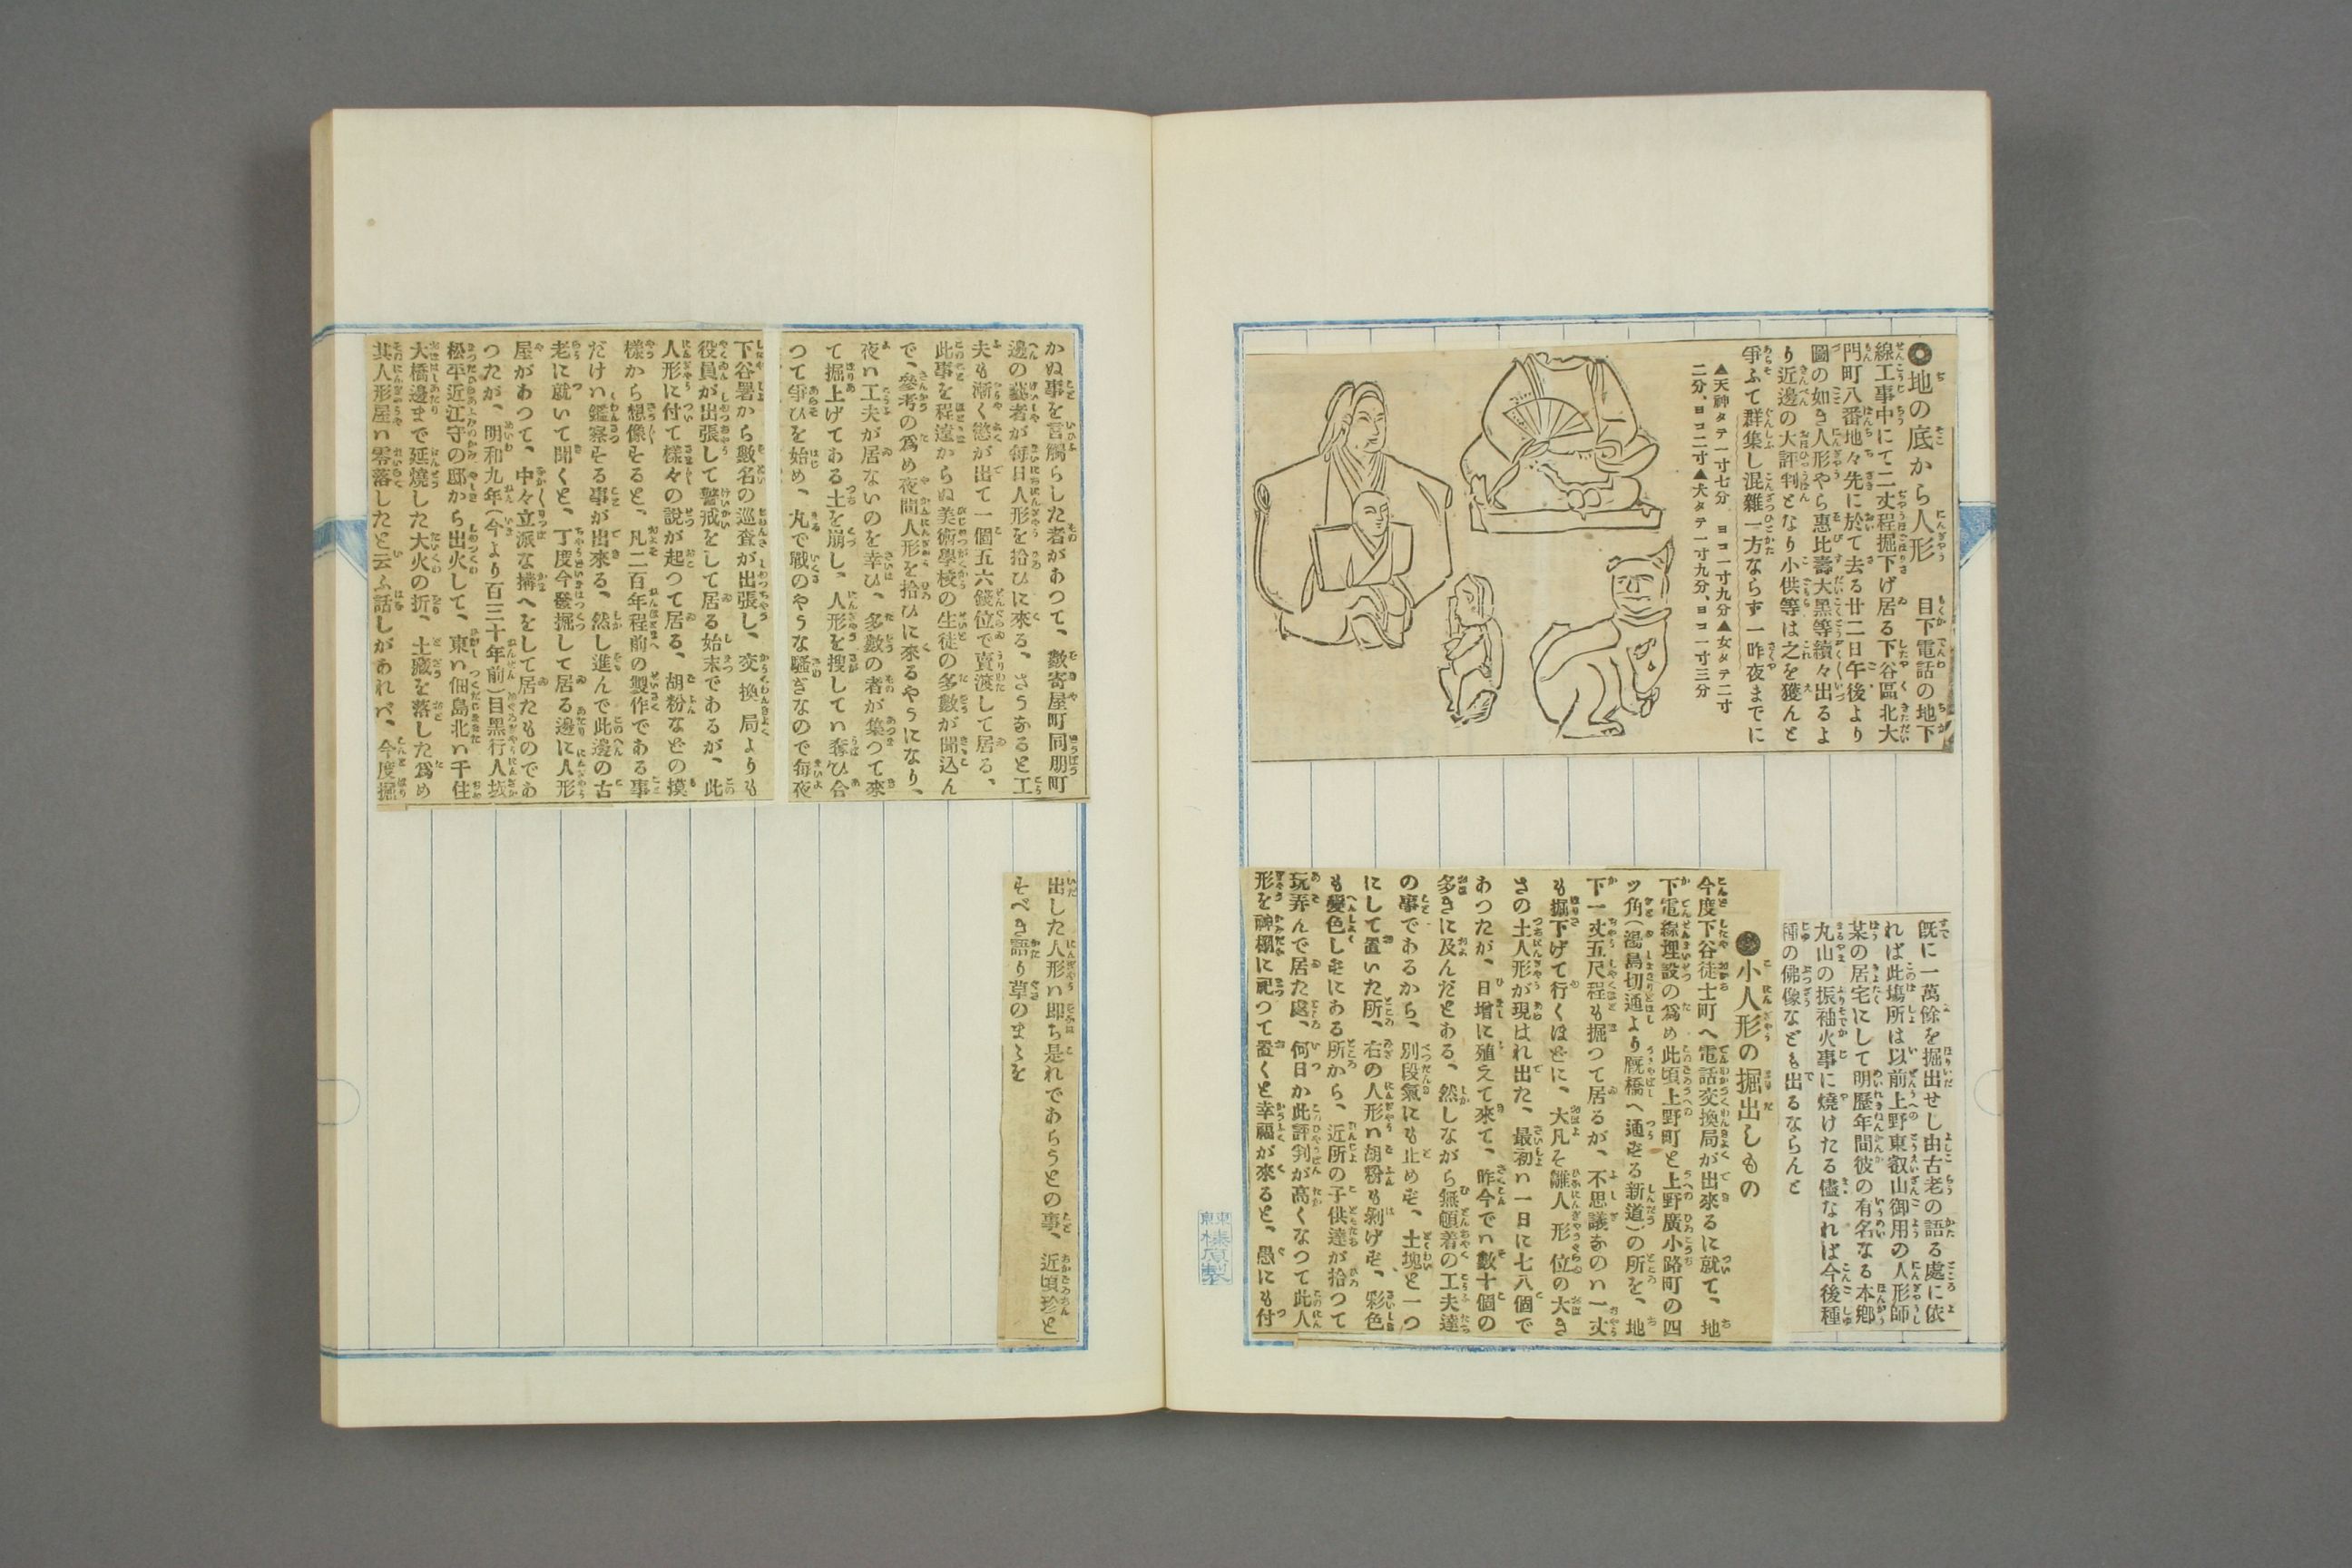 ◉地の底から人形　目下電話の地下
線工事中にて二丈程掘下げ居る下谷區北大
門町八番地々先に於て去る廿二日午後より
圖の如き人形やら惠比壽大黑等續々出るよ
り近邊の大評判となり小供等は之を獲んと
爭ふて群集し混雜一方ならず一昨夜までに
▲天神タテ一寸七分　ヨコ一寸九分▲女タテ二寸
二分、ヨコ二寸▲犬タテ一寸九分、ヨコ一寸三分
既に一萬餘を掘出せし由古老の語る處に依
れば此塲所は以前上野東叡山御用の人形師
某の居宅にして明歷年間彼の有名なる本鄕
丸山の振袖火事に燒けたる儘なれば今後種
種の佛像なども出るならんと
●小人形の掘出しもの
今度下谷徒士町へ電話交換局が出來るに就て、地
下電線埋設の爲め此頃上野町と上野廣小路町の四
ツ角（湯島切通より厩橋へ通ずる新道）の所を、地
下一丈五尺程も掘つて居るが、不思議なのハ一丈
も掘下げて行くほどに、大凡そ雛人形位の大き
さの土人形が現はれ出た、最初ハ一日に七八個で
あつたが、日增に殖えて來て、昨今でハ數十個の
多きに及んだとある、然しながら無頓着の工夫達
の事であるから、別段氣にも止めず、土塊と一つ
にして置いた所、右の人形ハ胡粉も剝げず、彩色
も變色しずにある所から、近所の子供達が拾つて
玩弄んで居た處、何日か此評判が高くなつて此人
形を神棚に祀つて置くと幸福が來ると、愚にも付
東京
榛原製
かぬ事を言觸らした者があつて、數寄屋町同朋町
邊の藝者が每日人形を拾ひに來る、さうなると工
夫も漸く慾が出て一個五六錢位で賣渡して居る、
此事を程遠からぬ美術學校の生徒の多數が聞込ん
で、參考の爲め夜間人形を拾ひに來るやうになり、
夜ハ工夫が居ないのを幸ひ、多數の者が集つて來
て掘上げてある土を崩し、人形を搜してハ奪ひ合
つて爭ひを始め、丸で戰のやうな騷ぎなので每夜
下谷署から數名の巡査が出張し、交換局よりも
役員が出張して警戒をして居る始末であるが、此
人形に付て樣々の說が起つて居る、胡粉などの摸
樣から想像すると、凡二百年程前の製作である事
だけハ鑑察する事が出來る、然し進んで此邊の古
老に就いて聞くと、丁度今發掘して居る邊に人形
屋があつて、中々立派な搆へをして居たものであ
つたが、明和九年（今より百三十年前）目黑行人坂
松平近江守の邸から出火して、東ハ佃島北ハ千住
大橋邊まで延燒した大火の折、土藏を落した爲め
其人形屋ハ零落したと云ふ話しがあれバ、今度掘
出した人形ハ即ち是れであらうとの事、近頃珍と
すべき語り草のまゝを